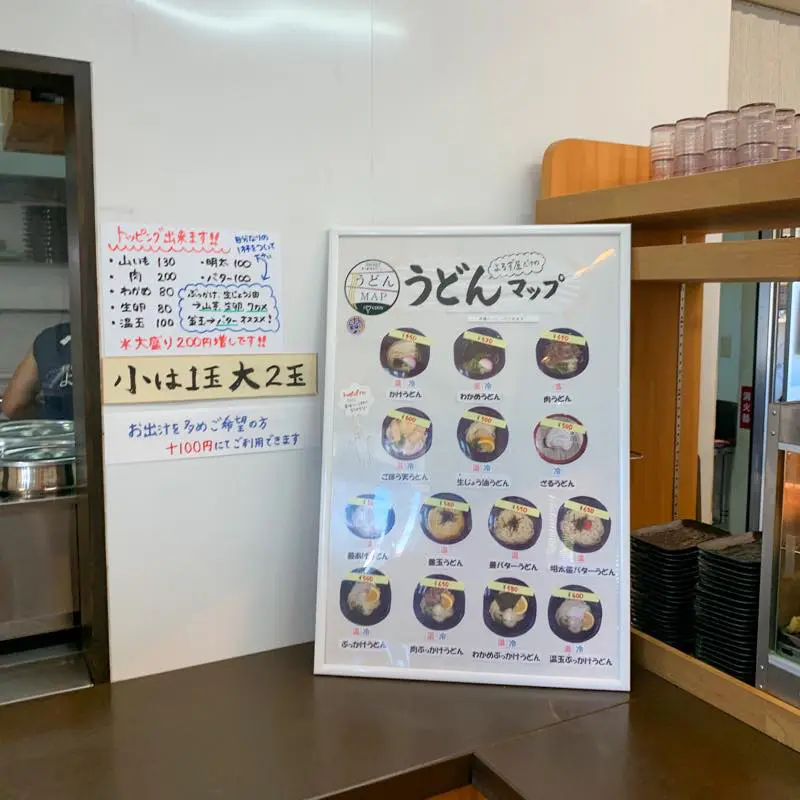 トッピング出来ます!!
自分なりの
1杯をつくって
下さい
・山いも 130
・肉 200
・わかめ 80
・生卵 80
・温玉 100
・明太 100
・バター 100
ぶっかけ 生じょう油
→山芋、生卵、ワカメ
釜玉→バター オススメ!
＊大盛り200円増しです!!
小は1玉大2玉
お出汁を多めご希望の方
+100円にてご利用できます
うどん
MAP
うどんマップ
温 冷
かけうどん
¥530
温 冷
わかめうどん
¥650
温
肉うどん
¥600
温 冷
ごぼう天うどん
¥500
温 冷
生じょう油うどん
¥500
冷
ざるうどん
温
釜あげうどん
温
釜玉うどん
温
釜バターうどん
¥650
温
明太釜バターうどん
¥500
温 冷
ぶっかけうどん
¥650
温 冷
肉ぶっかけうどん
¥580
温 冷
わかめぶっかけうどん
¥600
温 冷
温玉ぶっかけうどん
消火器